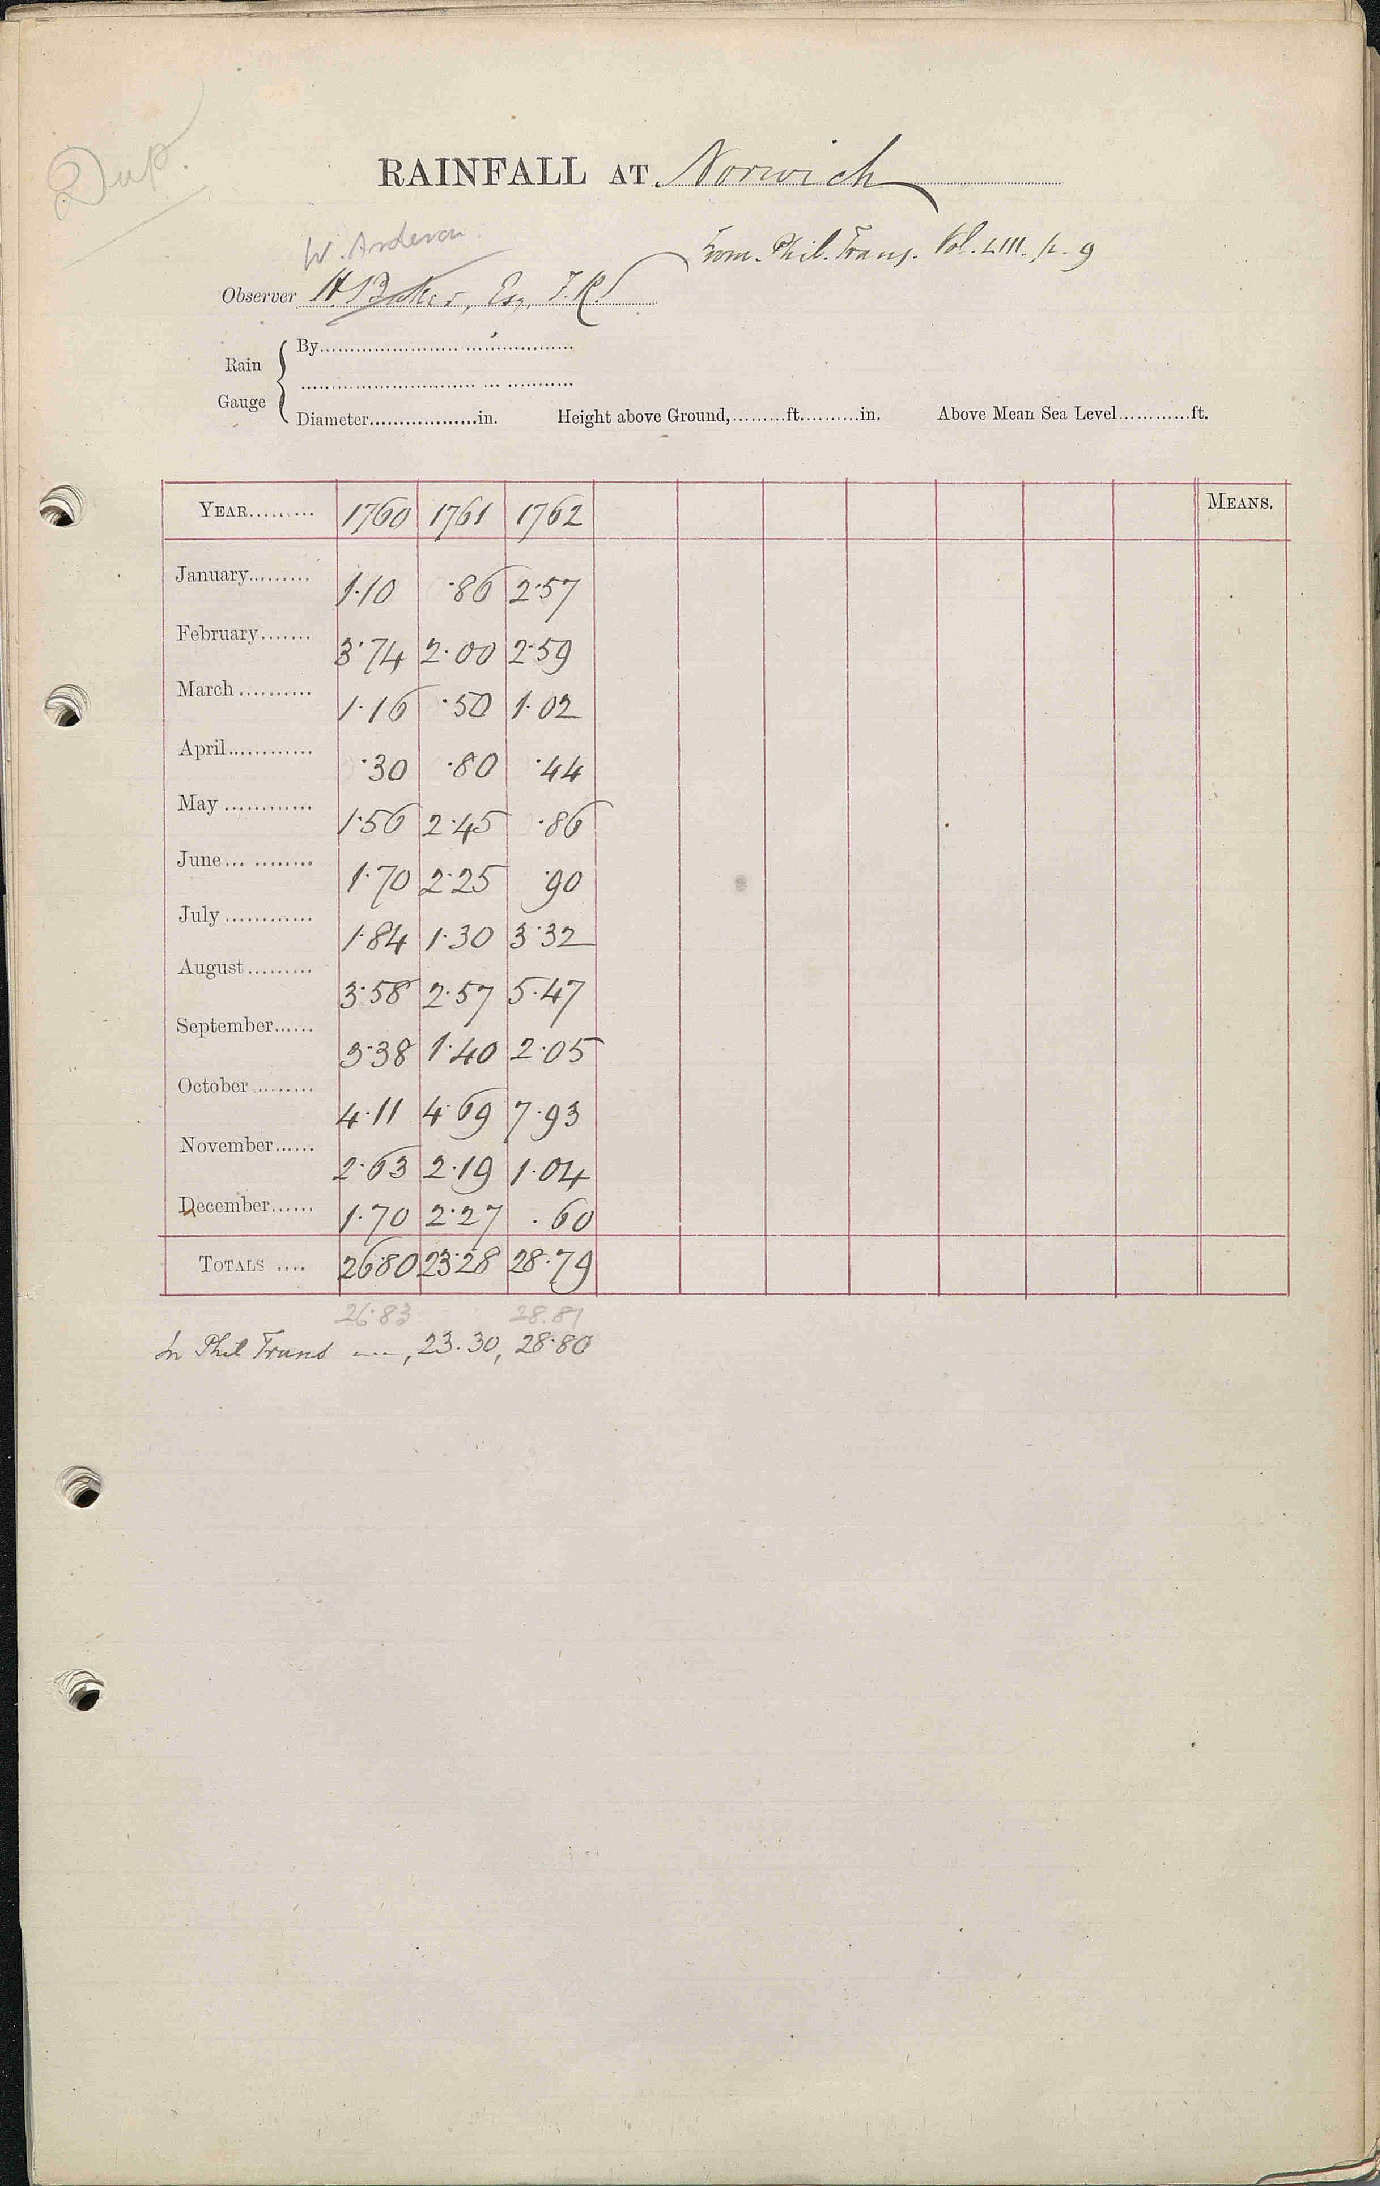 Dup.
RAINFALL AT Norwich
W. Arderon. From Phil. Trans. Vol. LIII. p. 9
Observer H. Baker, Esq, F.R.S
Rain Gauge
By
Diameter in. Height above Ground, ft. in. Above Mean Sea Level ft.
YEAR 1760 1761 1762 MEANS.
January 1.10 .86 2.57
February 3.74 2.00 2.59
March 1.16 .50 1.02
April .30 .80 .44
May 1.56 2.45 .86
June 1.70 2.25 .90
July 1.84 1.30 3.32
August 3.58 2.57 5.47
September 3.38 1.40 2.05
October 4.11 4.69 7.93
November 2.63 2.19 1.04
December 1.70 2.27 .60
TOTALS 26.80 23.28 28.79
26.83 28.81
In Phil Trans ---, 23.30, 28.80